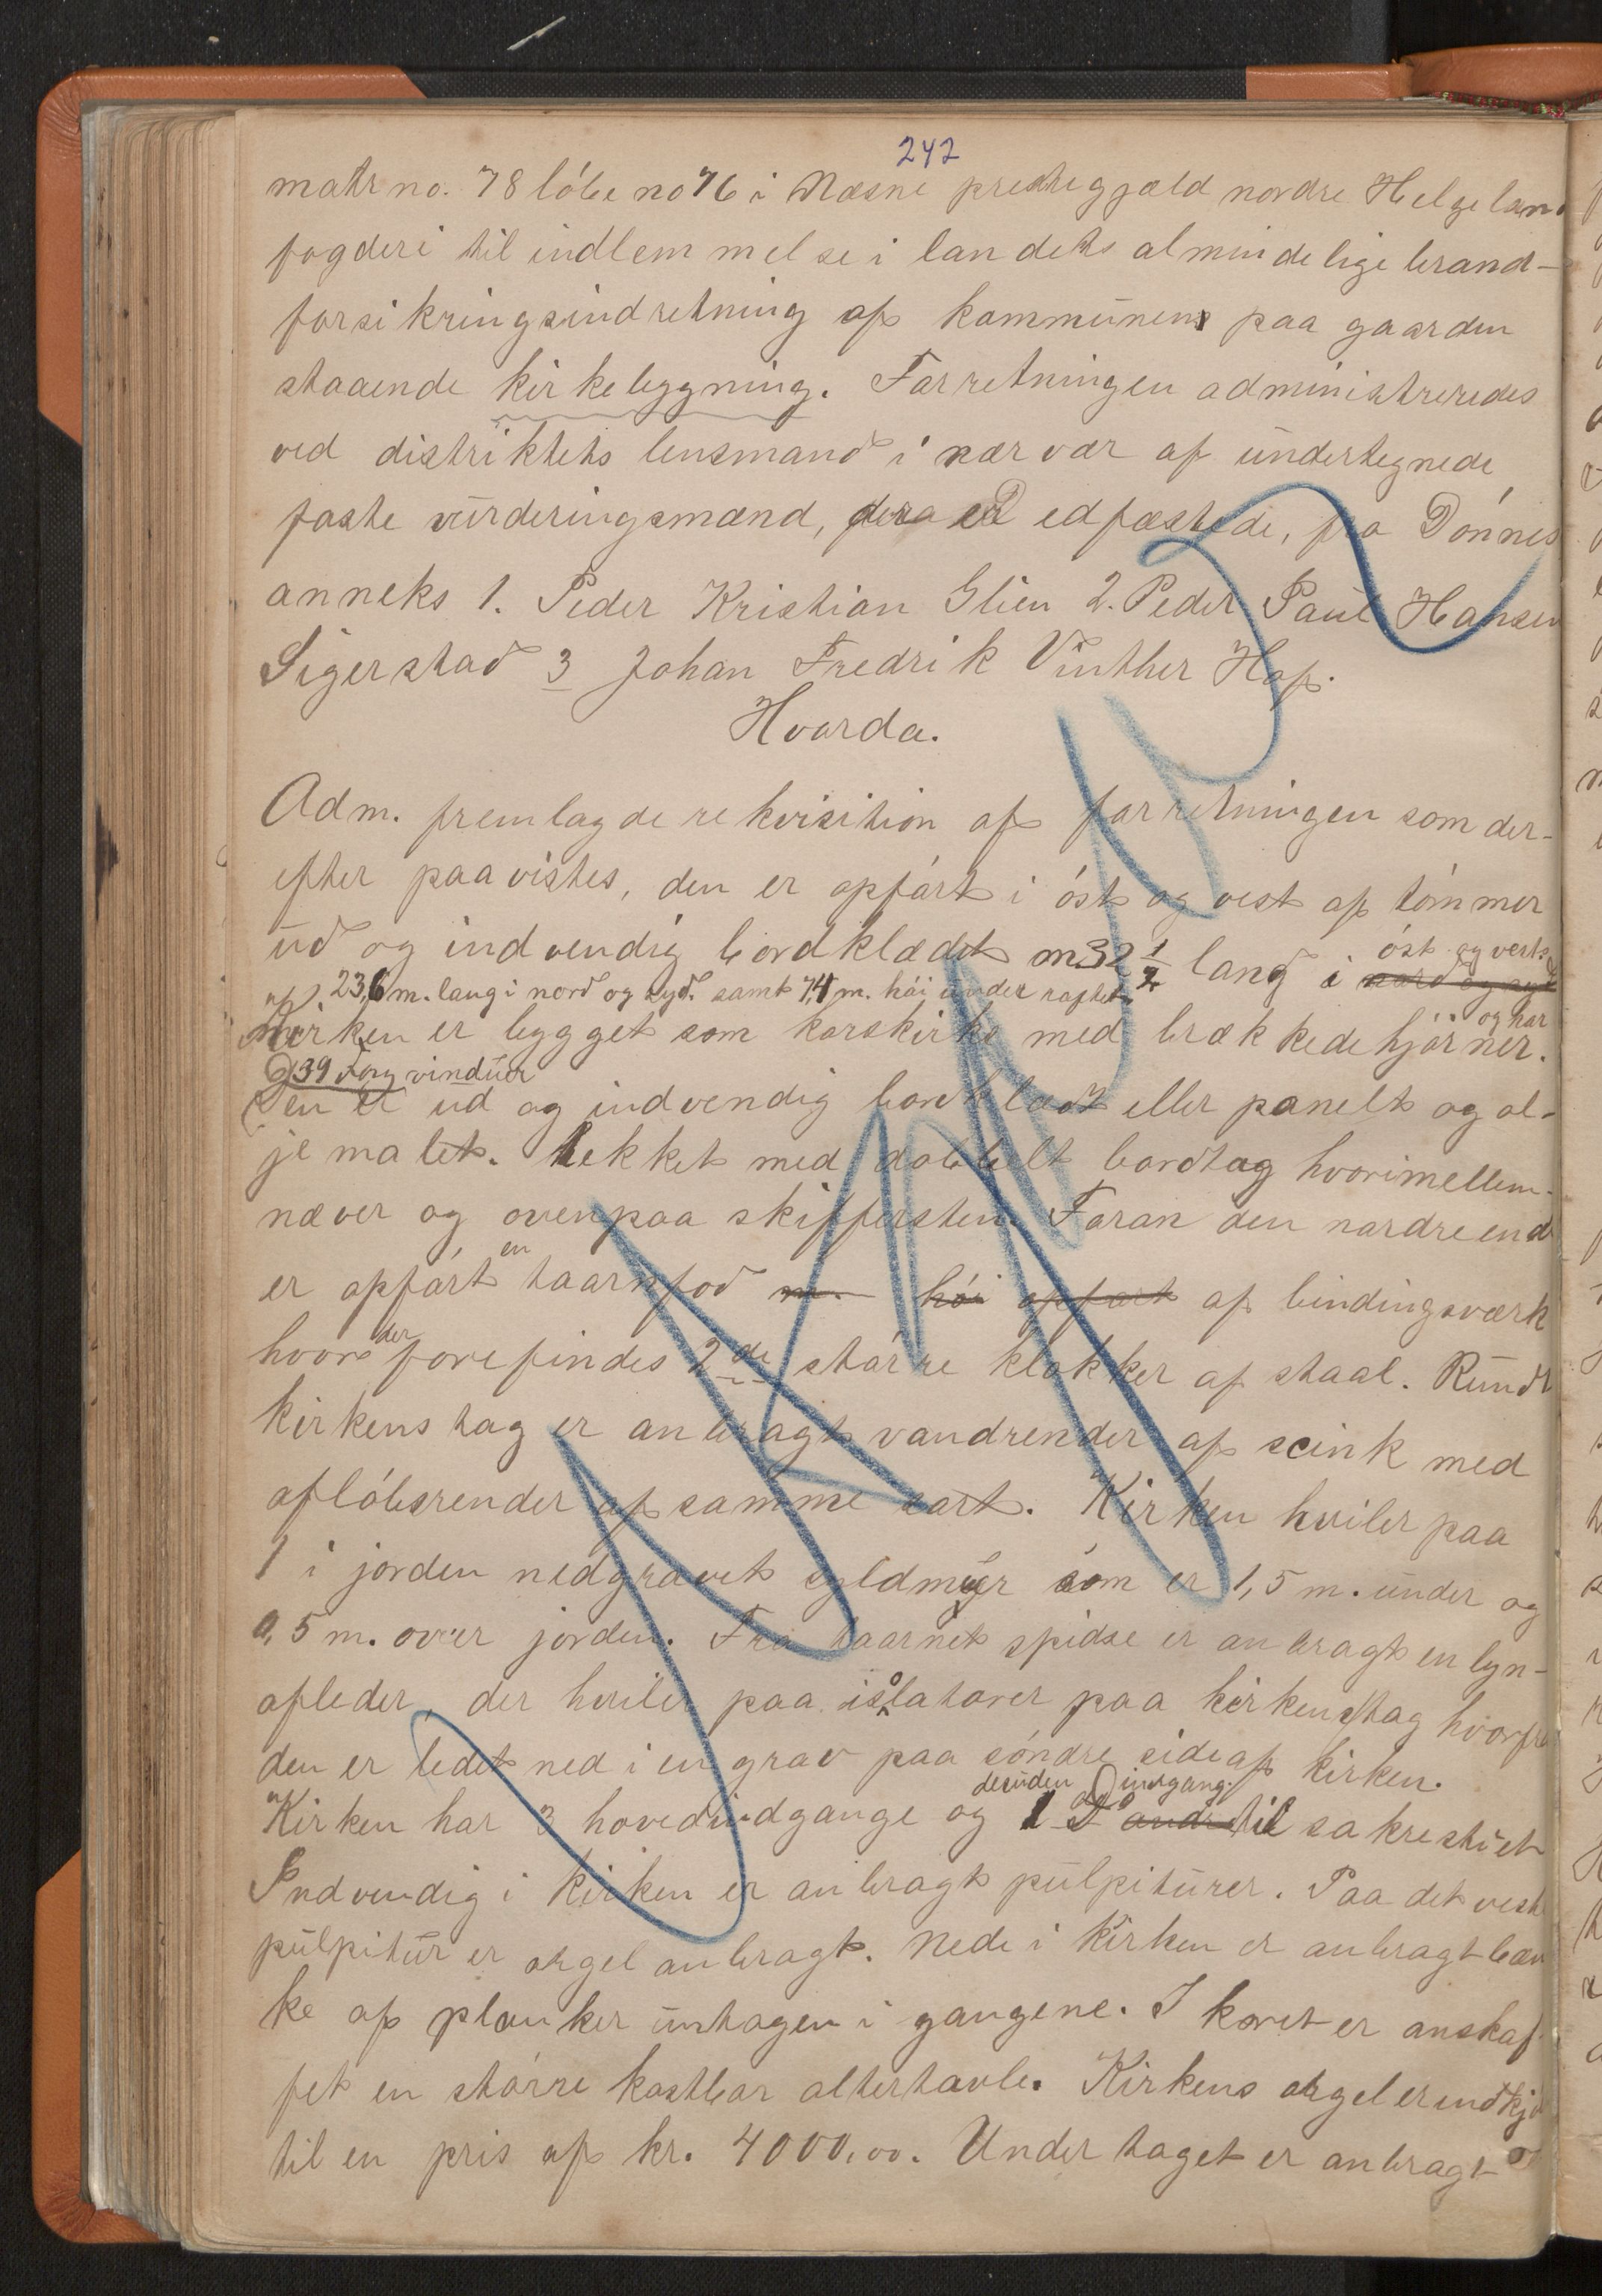 242
matr no. 78 löbe no 76 i Næsne prestegjæld nordre Helgeland
fogderi til indlemmelse i landets almindelige brand-
forsikringsindretning af kommunens paa gaarden
staaende kirkebygning. Forretningen administreredes
ved distriktets lensmand i nærvær af undertegnede
faste vurderingsmænd, edfæstede, fra Dönnes
anneks 1. Peder Kristian Glien 2. Peder Paul Hansen
Sigerstad 3 Johan Fredrik Vinther Hof.
Hvorda.
Adm. fremlagde rekvisition af forretningen som der-
efter paavistes, den er opfört i öst og vest af tömmer
ud og indvendig bordklædt m 32 1/2 lang i nord og syd öst og vest
23,6 m. lang i nord og syd. samt 7,4 m. höi under raftet
Kirken er bygget som korskirke med brækkede hjörner. og har
39 fag vinduer
Den er ud og indvendig bordklædt eller panelt og ol-
jemalet. Tekket med dobbelt bordtag hvorimellem
næver og ovenpaa skiffersten. Foran den nordre end
er opfört en taarnfod m. höi opfört af bindingsværk
hvor der forefindes 2de större klokker af staal. Rundt
kirkens tag er anbragt vandrender af scink med
aflöbsrender af samme sort. Kirken hviler paa
1 i jorden nedgravet syldmyr som er 1,5 m. under og
0,5 m. over jorden. Fra taarnets spidse er anbragt en lyn-
afleder, der hviler paa isolatorer paa kirkens tag hvorfra
den er ledet ned i en grav paa söndre side af kirken.
Kirken har 3 hovedindgange og desuden 1 indgang til sakrestiet
Indvendig i kirken er anbragt pulpiturer. Paa det vestre
pulpitur er orgel anbragt. Nede i kirken er anbragt bæn
ke af planker untagen i gangene. I koret er anskaf
fet en större kostbar altertavle. Kirkens orgel er indkjö
til en pris af kr. 4000,00. Under taget er anbragt